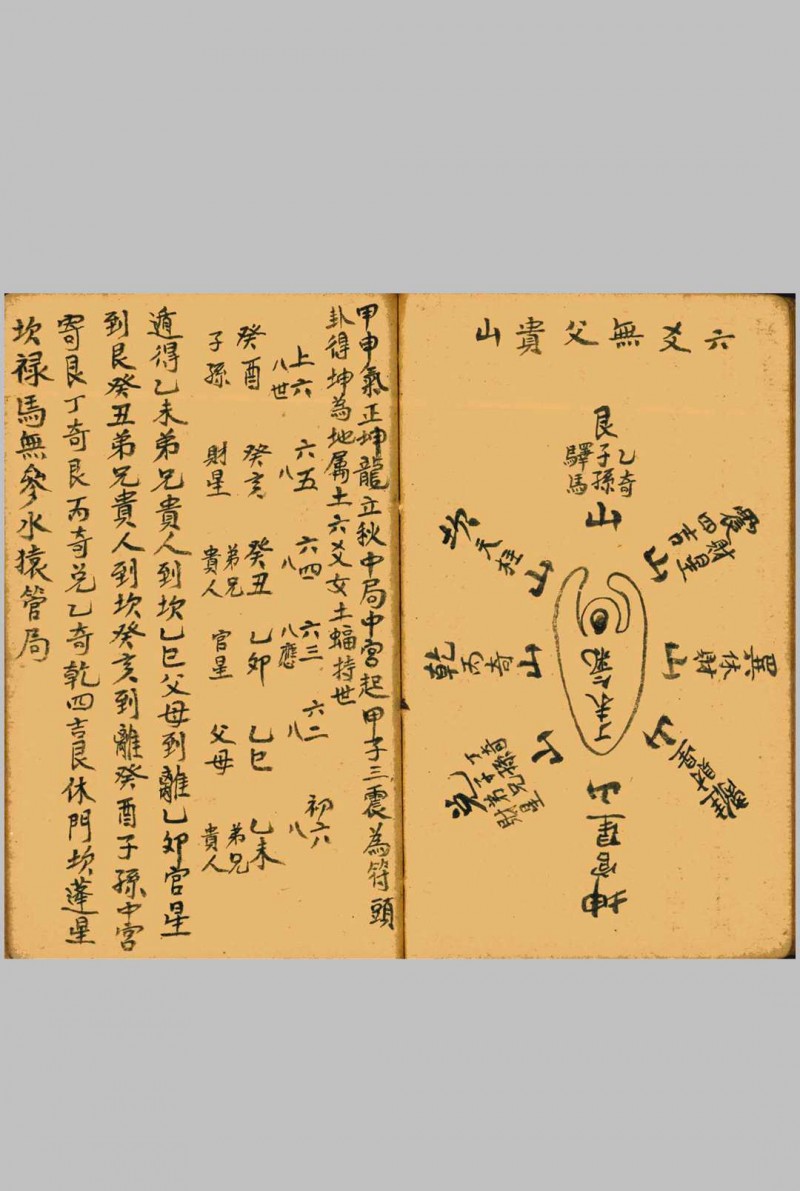 六爻無父貴山
艮
子孫乙奇
驛馬
山
震財星
四吉
山
巽伏財
山
離財星
山
坤官星
山
兌
丁奇
子孫
弟兄
財星
山
乾丙奇
山
坎天柱
山
甲申氣正坤龍立秋中局中宮起甲子三震為符頭
卦得坤為地属土六爻女土蝠持世
上六 六五 六四 六三 六二 初六
八世 八 八 八應 八 八
癸酉 癸亥 癸丑 乙卯 乙巳 乙未
子孫 財星 弟兄貴人 官星 父母 弟兄貴人
遁得乙未弟兄貴人到坎乙巳父母到離乙卯官星
到艮癸丑弟兄貴人到坎癸亥到離癸酉子孫中宮
寄艮丁奇艮丙奇兌乙奇乾四吉艮休門坎蓬星
坎禄馬無參水猿管局